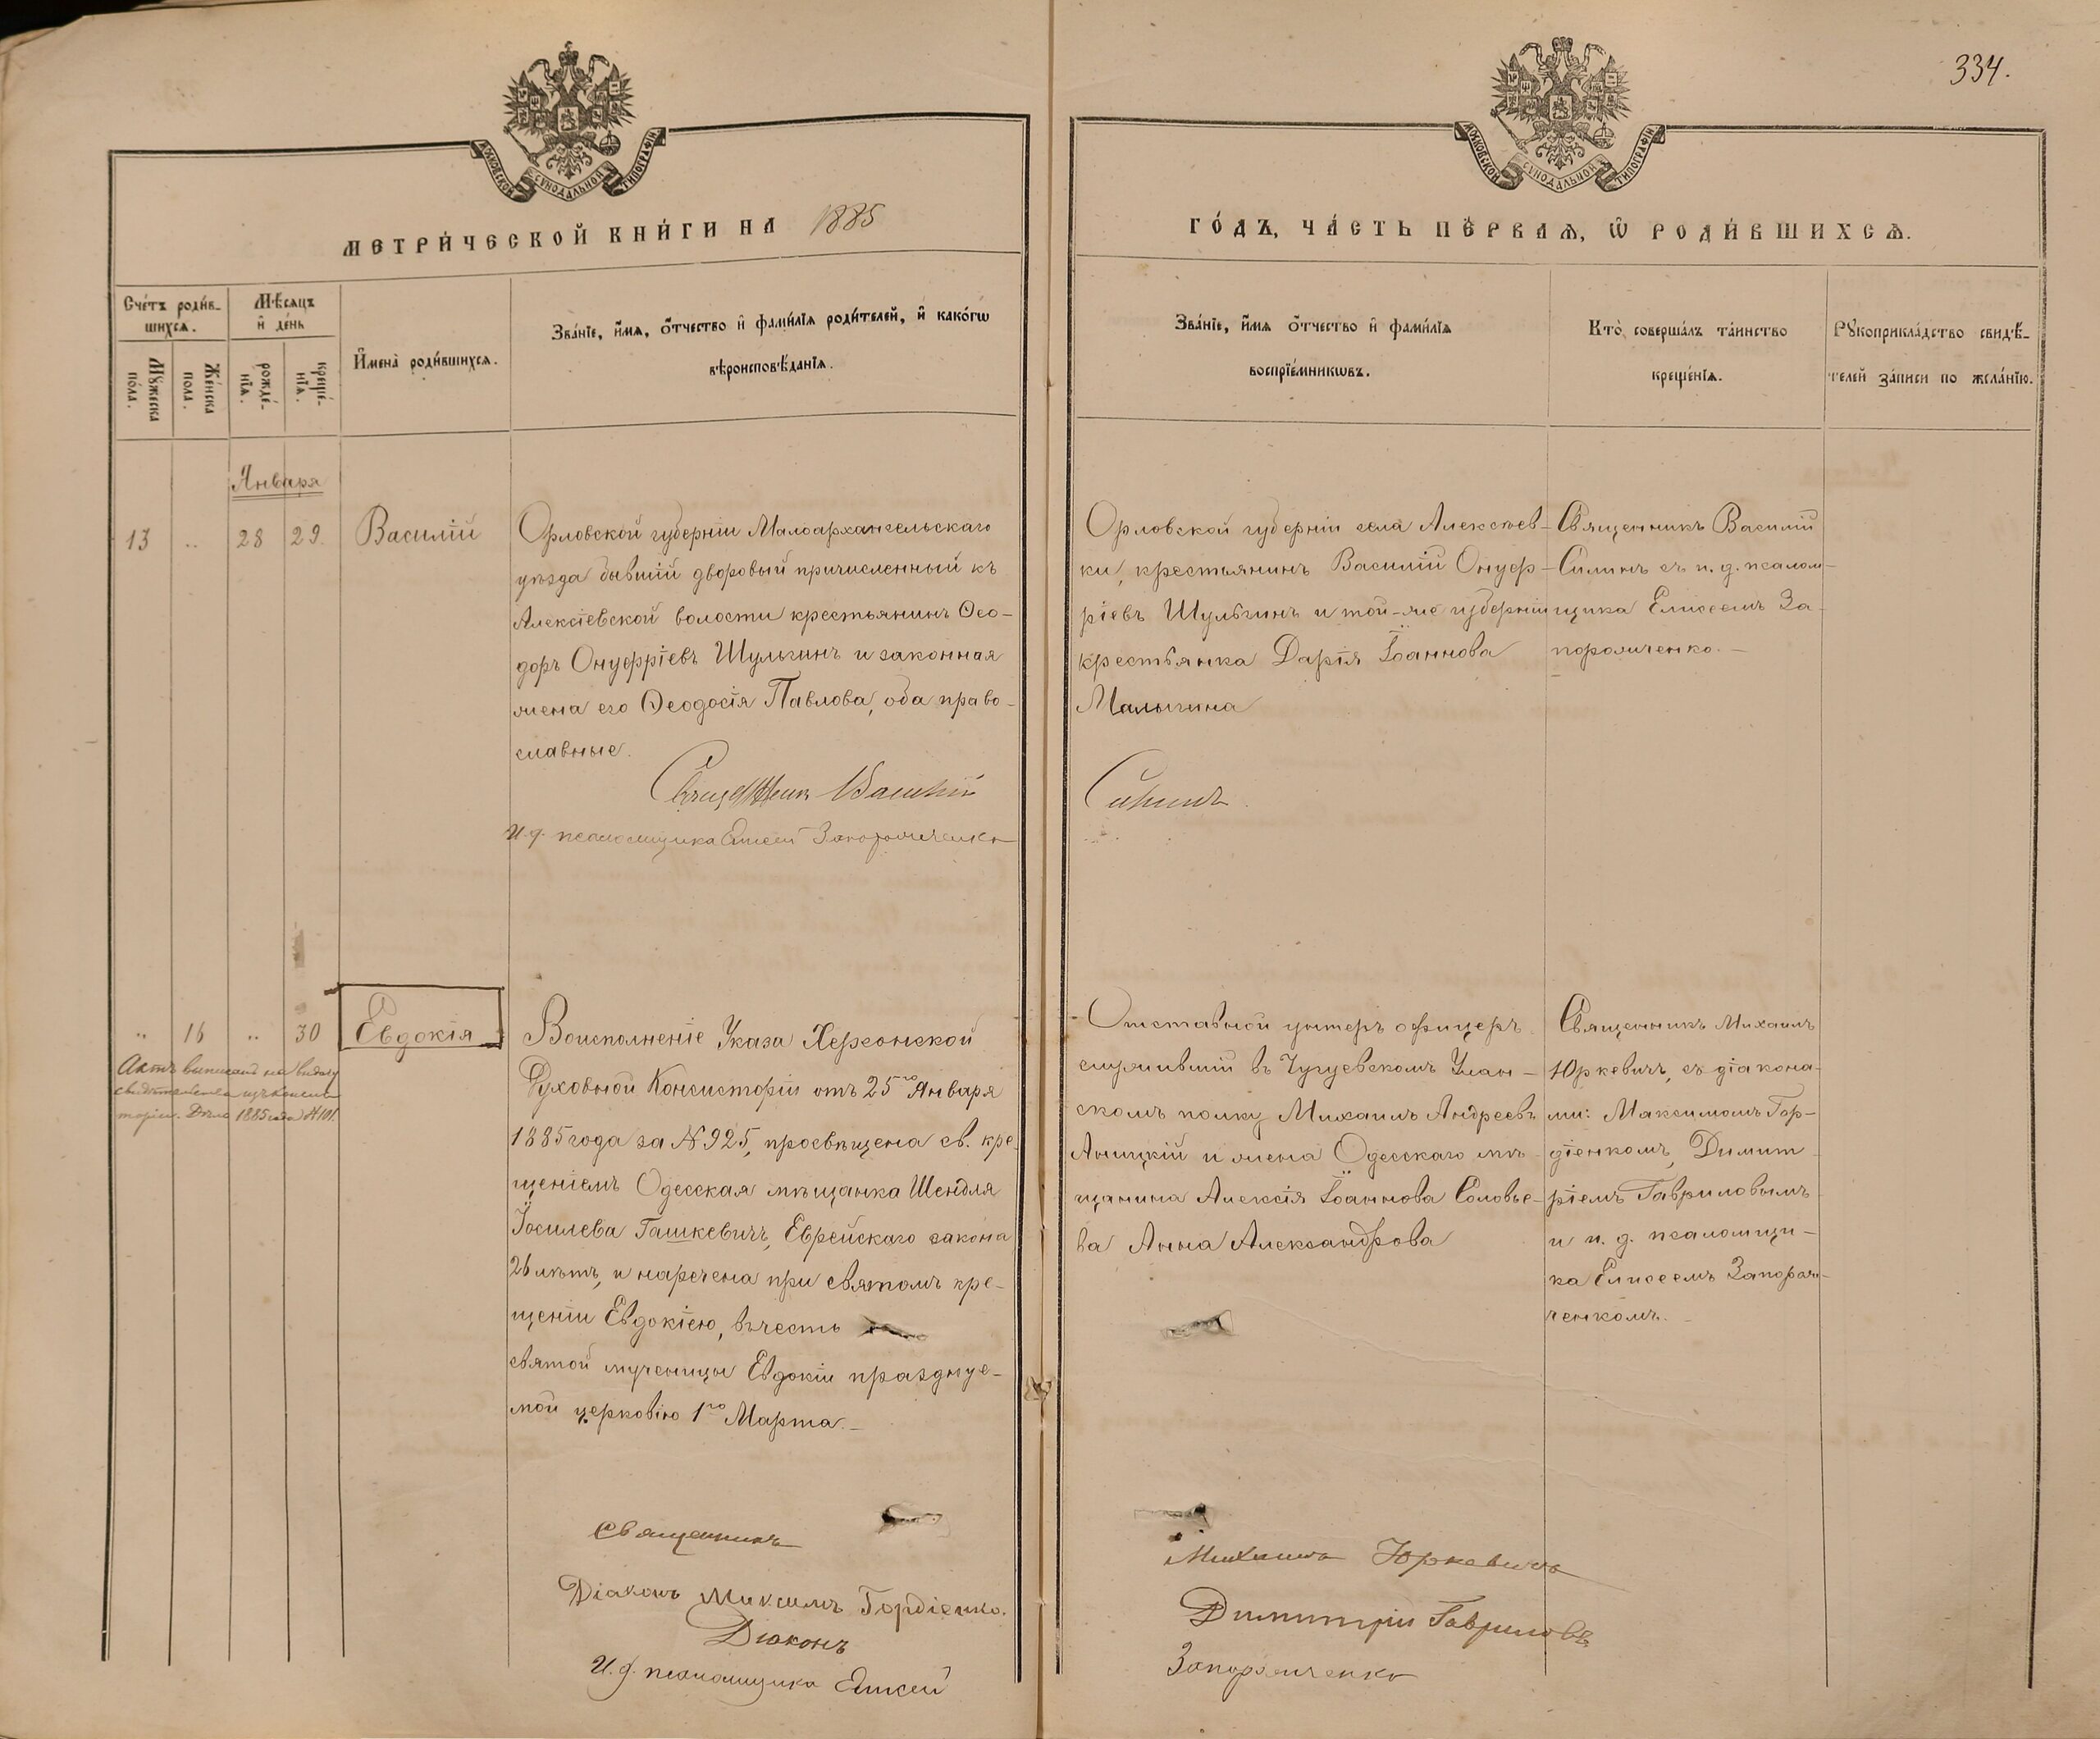 334.
МОСКОВСКОЙ СѴНОДАЛЬНОЙ ТИПОГРАФІИ
МОСКОВСКОЙ СѴНОДАЛЬНОЙ ТИПОГРАФІИ
МЕТРИ́ЧЕСКОЙ КНИ́ГИ НА 1885
ГО́ДЪ, ЧА́СТЬ ПЕ́РВАѦ, Ѡ РОДИ́ВШИХСѦ.
Сче́тъ роди́в-
шихсѧ.
Мѣ́сѧцъ
и҆ де́нь
Мꙋ́жеска
по́ла.
Же́нска
пола.
рожде́-
нїѧ.
креще́-
нїѧ.
И҆мена̀ роди́вшихсѧ.
Зва́нїе, и҆́мѧ, о҆́тчество и҆ фами́лїѧ роди́телей, и҆ како́гѡ
вѣроисповѣ́данїѧ.
Зва́нїе, и҆́мѧ о҆́тчество и҆ фами́лїѧ
воспрїе́мникѡвъ.
Кто̀ соверша́лъ та́инство
креще́нїѧ.
Рꙋкоприкла́дство свидѣ́-
телей за́писи по жела́нїю.
Января
13 „ 28 29. Василій
Орловской губерніи Малоархангельскаго
уѣзда бывшій дворовый причисленный къ
Алексіевской волости крестьянинъ Ѳео-
доръ Онуфріевъ Шульгинъ и законная
жена его Ѳеодосія Павлова, оба право-
славные.
Священникъ Василій
И. д. псаломщика Елисей Запорожченко
Орловской губерніи села Алексѣев-
ки, крестьянинъ Василій Онуф-
ріевъ Шульгинъ и той-же губерніи
крестьянка Дарія Іоаннова
Малыгина
Силинъ
Священникъ Василій
Силинъ съ и. д. псалом-
щика Елисеемъ За-
порожченко.
„ 16 „ 30 Евдокія
Актъ выписанъ на выдачу
свидѣтельства изъ Консис
торіи. Дѣло 1885 года №101.
Воисполненіе Указа Херсонской
Духовной Консисторіи отъ 25го Января
1885 года за № 925, просвѣщена св. кре-
щеніемъ Одесская мѣщанка Шендля
Іосилева Гашкевичъ, Еврейскаго закона
26 лѣтъ, и наречена при святомъ кре-
щеніи Евдокіею, въ честь
святой мученицы Евдокіи празднуе-
мой церковію 1го Марта.
Священникъ
Діаконъ Максимъ Гордіенко.
Діаконъ
И. д. псаломщика Елисей
Отставной унтеръ офицеръ
служившій въ Чугуевскомъ Улан-
скомъ полку Михаилъ Андреевъ
Аницкій и жена Одесскаго мѣ-
щанина Алексія Іоаннова Соловье-
ва Анна Александрова
Михаилъ Юркевичъ
Димитрій Гавриловъ
Запорожченко
Священникъ Михаилъ
Юркевичъ, съ діакона-
ми: Максимомъ Гор-
діенкомъ, Димит-
ріемъ Гавриловымъ
и и. д. псаломщи-
ка Елисеемъ Запорож-
ченкомъ.